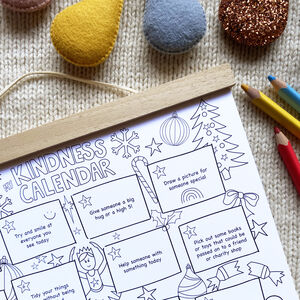 MY
KINDNESS
CALENDAR
Try and smile at
everyone you
see today
Give someone a big
hug or a high 5!
Draw a picture for
someone special
Tidy your things
without being
Help someone with
something today
Pick out some books
or toys that could be
passed on to a friend
or charity shop